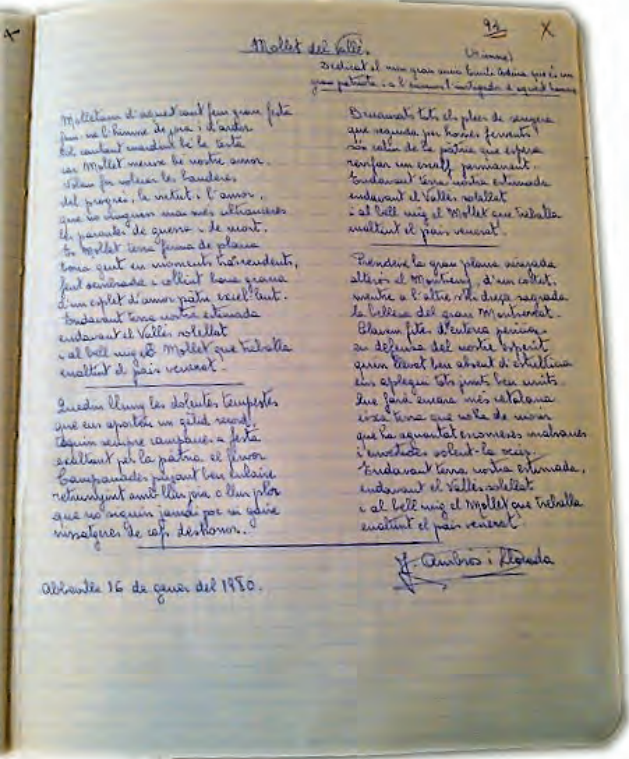 94
X
Mollet del Vallès.
(Himne)
Dedicat al meu gran amic Emili Odina que és un
gran patriota i a l'ensems l'instigador d'aquest himne
Molletans d'aquest cant feu gran festa
feu-ne l'himne de joia i d'amor
tot cantant mantinc bé la testa
car Mollet mereix bé nostre amor.
Volem fer voleiar les banderes
del progrés, la virtut i l'amor,
que no vinguin mai més
de guerra i de mort.
És Mollet terra ferma de plana
bona gent en moments
fent i collint bona grana
d'un esplet d'amor patri excel·lent.
Endavant terra nostra estimada
endavant el Vallès solellat
i al bell mig el Mollet que treballa
enaltint el país venerat.
Quedin lluny les dolentes tempestes
que ens aporten un gèlid
siguin sempre campanes a festa
exaltant per la pàtria el
Campanades pujant ben enlaire
retrunyint amb llur joia o llur plor
que no siguin jamai per ni gaire
missatgeres de cap deshonor.
Abbeville 16 de gener del 1980.
Bruements tots els plecs de senyera
que seguida per homes fervents
són l'alen de la pàtria que espera
un permanent.
Endavant terra nostra estimada
endavant el Vallès solellat
i al bell mig el Mollet que treballa
enaltint el país venerat.
Prendera la gran plana airejada
alterós el Montseny d'un costat,
mentre a l'altre s'hi dreça sagrada
la bellesa del gran Montserrat.
Clavem fites d'enterca
en defensa del nostre esperit
llevat ben absent
ens aplegui tots junts ben units.
Que farà encara més catalana
eixa terra que no ha de morir
que ha aguantat escomeses
i envestides volent-la
Endavant terra nostra estimada,
endavant el Vallès solellat
i al bell mig el Mollet que treballa
enaltint el país venerat.
J. Ambrós i Lloreda